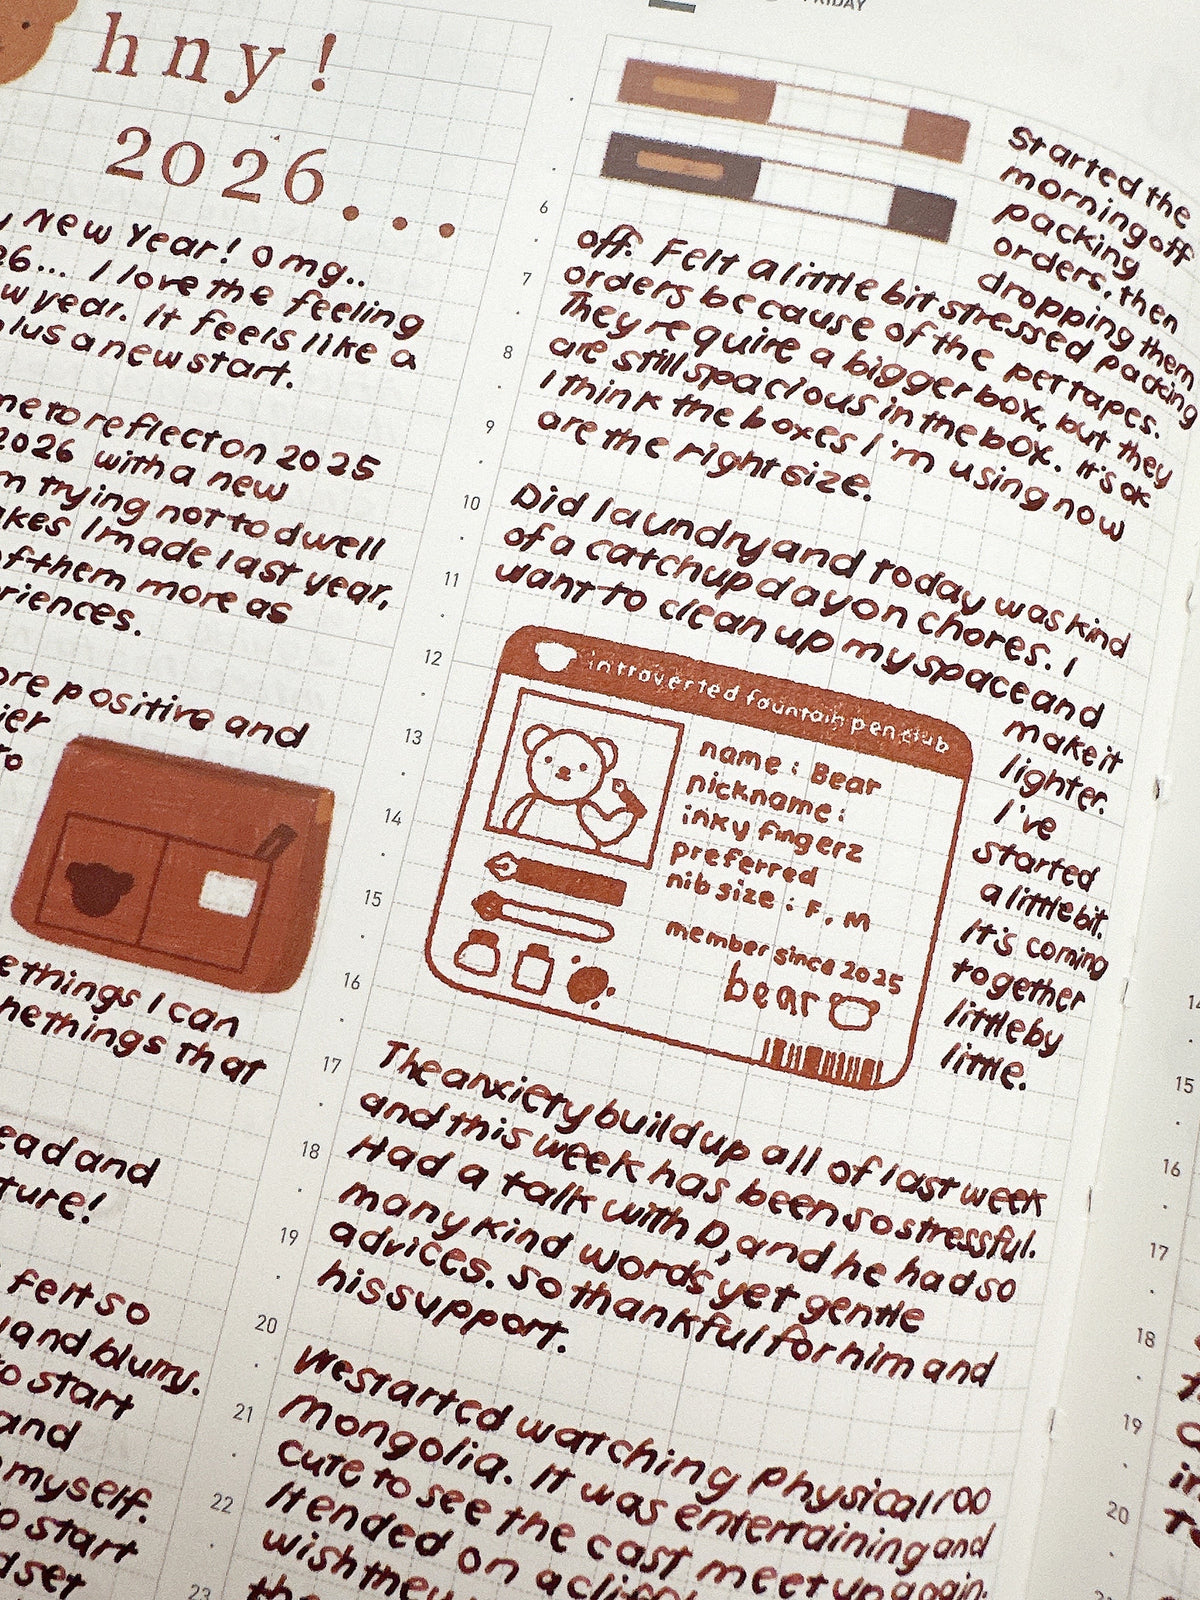 FRIDAY
hny!
2026...
New Year! Omg..
26... I love the feeling
year. It feels like a
plus a new start.
to reflect on 2025
2026 with a new
trying not to dwell
I made last year,
of them more as
positive and
things I can
the things that
and
felt so
and blurry.
to start
and
myself.
to start
Started the
morning off
packing
orders, then
dropping them
off. Felt a little bit stressed packing
orders because of the pet tapes.
They require a bigger box, but they
are still spacious in the box. It's ok
I think the boxes I'm using now
are the right size.
Did laundry and today was kind
of a catchup day on chores. I
want to clean up my space and
make it
lighter.
I've
started
a little bit.
It's coming
together
little by
little.
introverted fountain pen club
name : Bear
nickname :
inky fingerz
preferred
nib size : F, M
member since 2025
bear
The anxiety build up all of last week
and this week has been so stressful.
Had a talk with D, and he had so
many kind words yet gentle
advices. So thankful for him and
his support.
We started watching Physical 100
Mongolia. It was entertaining and
cute to see the cast meet up again.
It ended on a
wish they
6
7
8
9
10
11
12
13
14
15
16
17
18
19
20
21
22
23
14
15
16
17
18
19
20